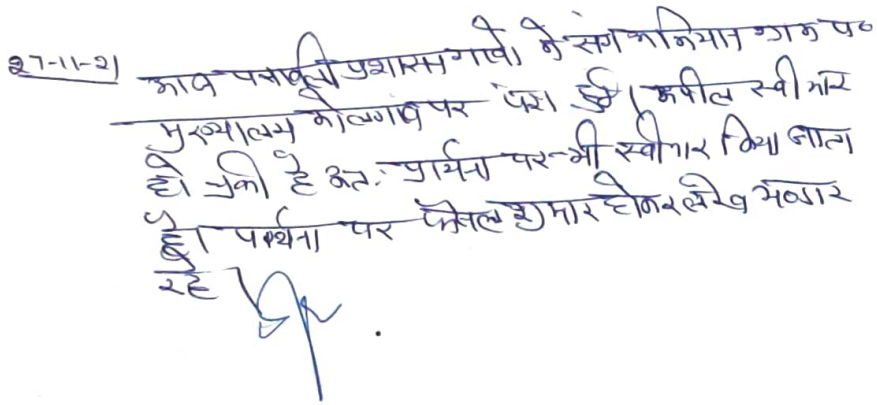 27-11-21 आज पत्रावली प्रशासन गावो के संग अभियान ग्राम पं०
मुख्यालय कोलगांव पर पेश हुई। अपील स्वीकार
हो चुकी है अतः प्रार्थना पत्र भी स्वीकार किया जाता
है। प्रार्थना पत्र फैसल शुमार होकर लेख भण्डार
रहे